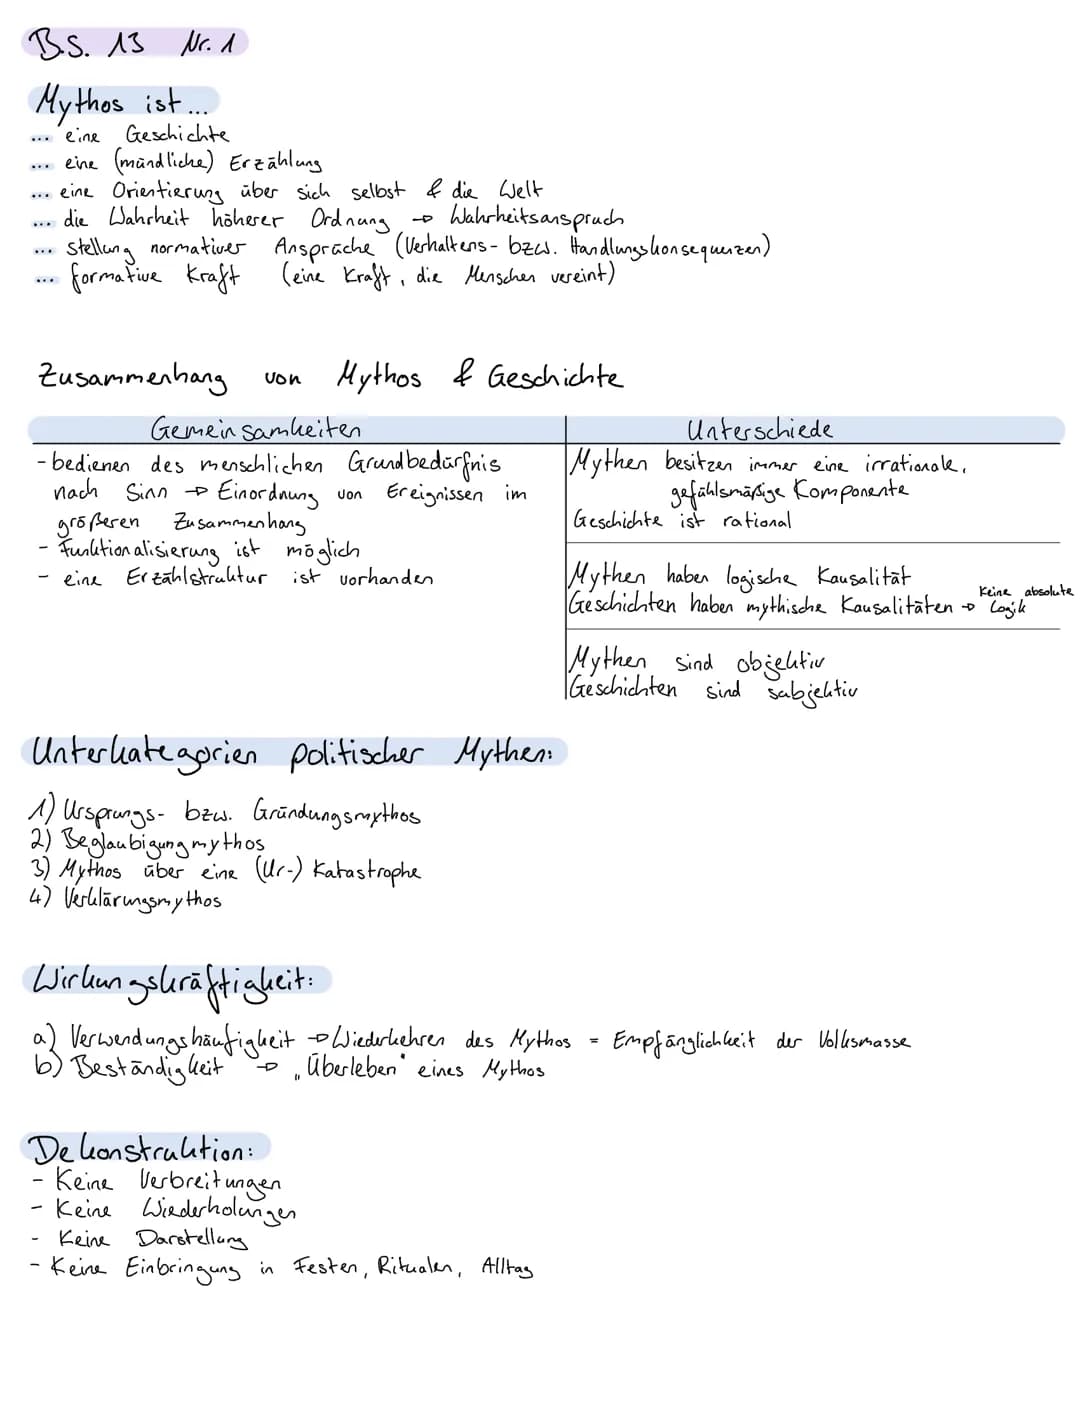 B.S. 13 Nr. 1
Mythos ist...
... eine Geschichte
... eine (mündliche) Erzählung
... eine Orientierung über sich selbst & die Welt
... die Wahrheit höherer Ordnung → Wahrheitsanspruch
... Stellung normativer Ansprüche (Verhaltens- bzw. Handlungskonsequenzen)
... formative Kraft (eine Kraft, die Menschen vereint)
Zusammenhang von Mythos & Geschichte
Gemeinsamkeiten
- bedienen des menschlichen Grundbedürfnis
nach Sinn → Einordnung von Ereignissen im
größeren Zusammenhang
- Funktionalisierung ist möglich
- eine Erzählstruktur ist vorhanden
Unterschiede
Mythen besitzen immer eine irrationale,
gefühlsmäßige Komponente
Geschichte ist rational
Mythen haben logische Kausalität
Geschichten haben mythische Kausalitäten → Keine absolute Logik
Mythen sind objektiv
Geschichten sind subjektiv
Unterkategorien politischer Mythen:
1) Ursprungs- bzw. Gründungsmythos
2) Beglaubigungmythos
3) Mythos über eine (Ur-) Katastrophe
4) Verklärungsmythos
Wirkungskräftigkeit:
a) Verwendungshäufigkeit → Wiederkehren des Mythos = Empfänglichkeit der Volksmasse
b) Beständigkeit → „Überleben" eines Mythos
Dekonstruktion:
- Keine Verbreitungen
- Keine Wiederholungen
- Keine Darstellung
- Keine Einbringung in Festen, Ritualen, Alltag